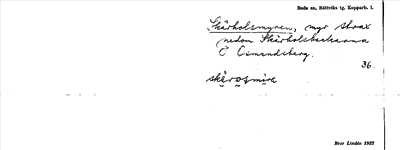 Boda sn, Rättviks tg, Kopparb. l.
Skärholsmyren, myr strax
nedom Skärholsbackarna
Ö Osmundsberg.
36.
Bror Lindén 1932